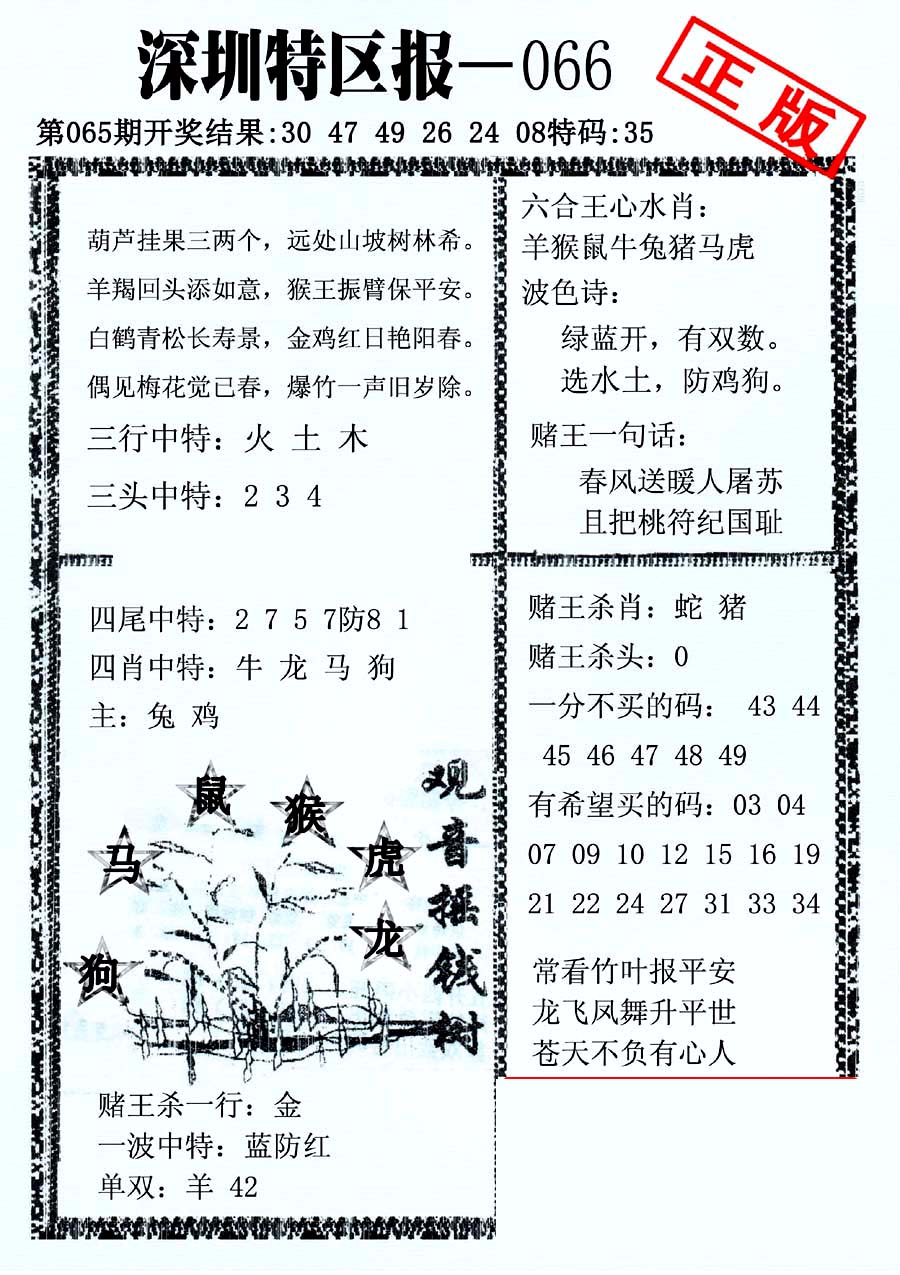 深圳特区报—066
正版
第065期开奖结果:30 47 49 26 24 08特码:35
葫芦挂果三两个，远处山坡树林希。
羊羯回头添如意，猴王振臂保平安。
白鹤青松长寿景，金鸡红日艳阳春。
偶见梅花觉已春，爆竹一声旧岁除。
三行中特：火 土 木
三头中特：2 3 4
六合王心水肖：
羊猴鼠牛兔猪马虎
波色诗：
绿蓝开，有双数。
选水土，防鸡狗。
赌王一句话：
春风送暖人屠苏
且把桃符纪国耻
四尾中特：2 7 5 7防8 1
四肖中特：牛 龙 马 狗
主：兔 鸡
鼠
猴
马
虎
龙
狗
观音摇钱树
赌王杀一行：金
一波中特：蓝防红
单双：羊 42
赌王杀肖：蛇 猪
赌王杀头：0
一分不买的码： 43 44
45 46 47 48 49
有希望买的码：03 04
07 09 10 12 15 16 19
21 22 24 27 31 33 34
常看竹叶报平安
龙飞凤舞升平世
苍天不负有心人